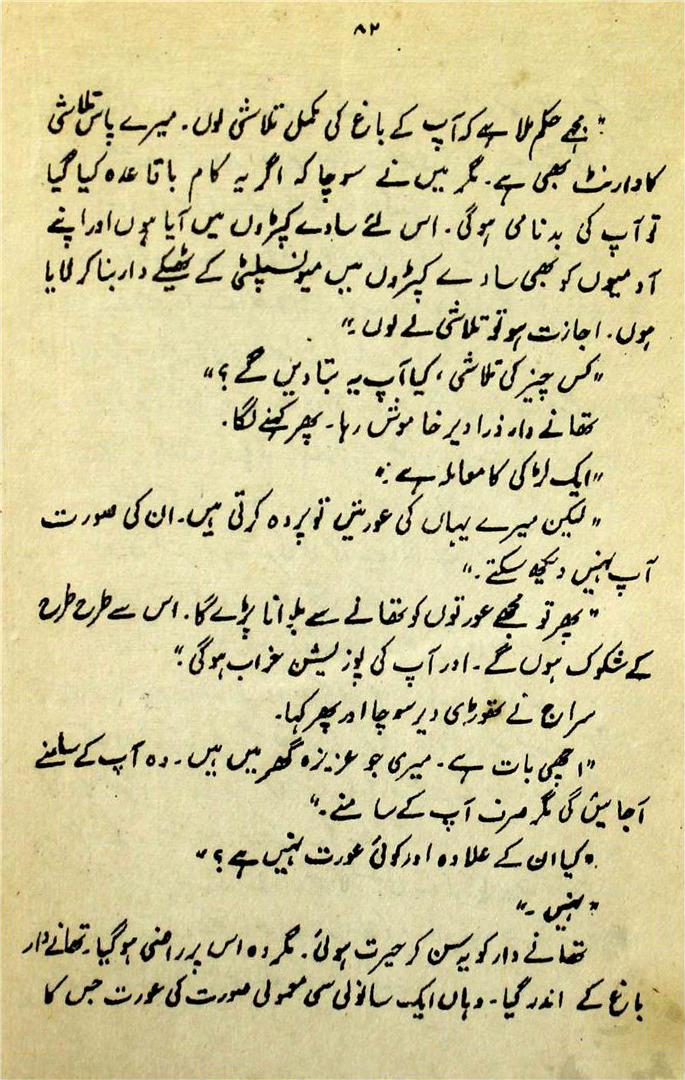 ۸۲
"مجھے حکم ملا ہے کہ آپ کے باغ کی مکمل تلاشی لوں۔ میرے پاس تلاشی
کا وارنٹ بھی ہے۔ مگر میں نے سوچا کہ اگر یہ کام باقاعدہ کیا گیا
تو آپ کی بدنامی ہوگی۔ اس لئے سادے کپڑوں میں آیا ہوں اور اپنے
آدمیوں کو بھی سادے کپڑوں میں میونسپلٹی کے ٹھیکے دار بنا کر لایا
ہوں۔ اجازت ہو تو تلاشی لے لوں۔"
"کس چیز کی تلاشی، کیا آپ یہ بتا دیں گے؟"
تھانے دار ذرا دیر خاموش رہا۔ پھر کہنے لگا۔
"ایک لڑکی کا معاملہ ہے۔"
"لیکن میرے یہاں کی عورتیں تو پردہ کرتی ہیں۔ ان کی صورت
آپ نہیں دیکھ سکتے۔"
"پھر تو مجھے عورتوں کو تھانے سے بلوانا پڑے گا۔ اس سے طرح طرح
کے شکوک ہوں گے۔ اور آپ کی پوزیشن خراب ہوگی۔"
سراج نے تھوڑی دیر سوچا اور پھر کہا۔
"اچھی بات ہے۔ میری جو عزیزہ گھر میں ہیں۔ وہ آپ کے سامنے
آجائیں گی مگر صرف آپ کے سامنے۔"
"کیا ان کے علاوہ اور کوئی عورت نہیں ہے؟"
"نہیں۔"
تھانے دار کو یہ سن کر حیرت ہوئی۔ مگر وہ اس پر راضی ہوگیا۔ تھانے دار
باغ کے اندر گیا۔ وہاں ایک سانولی سی معمولی صورت کی عورت جس کا